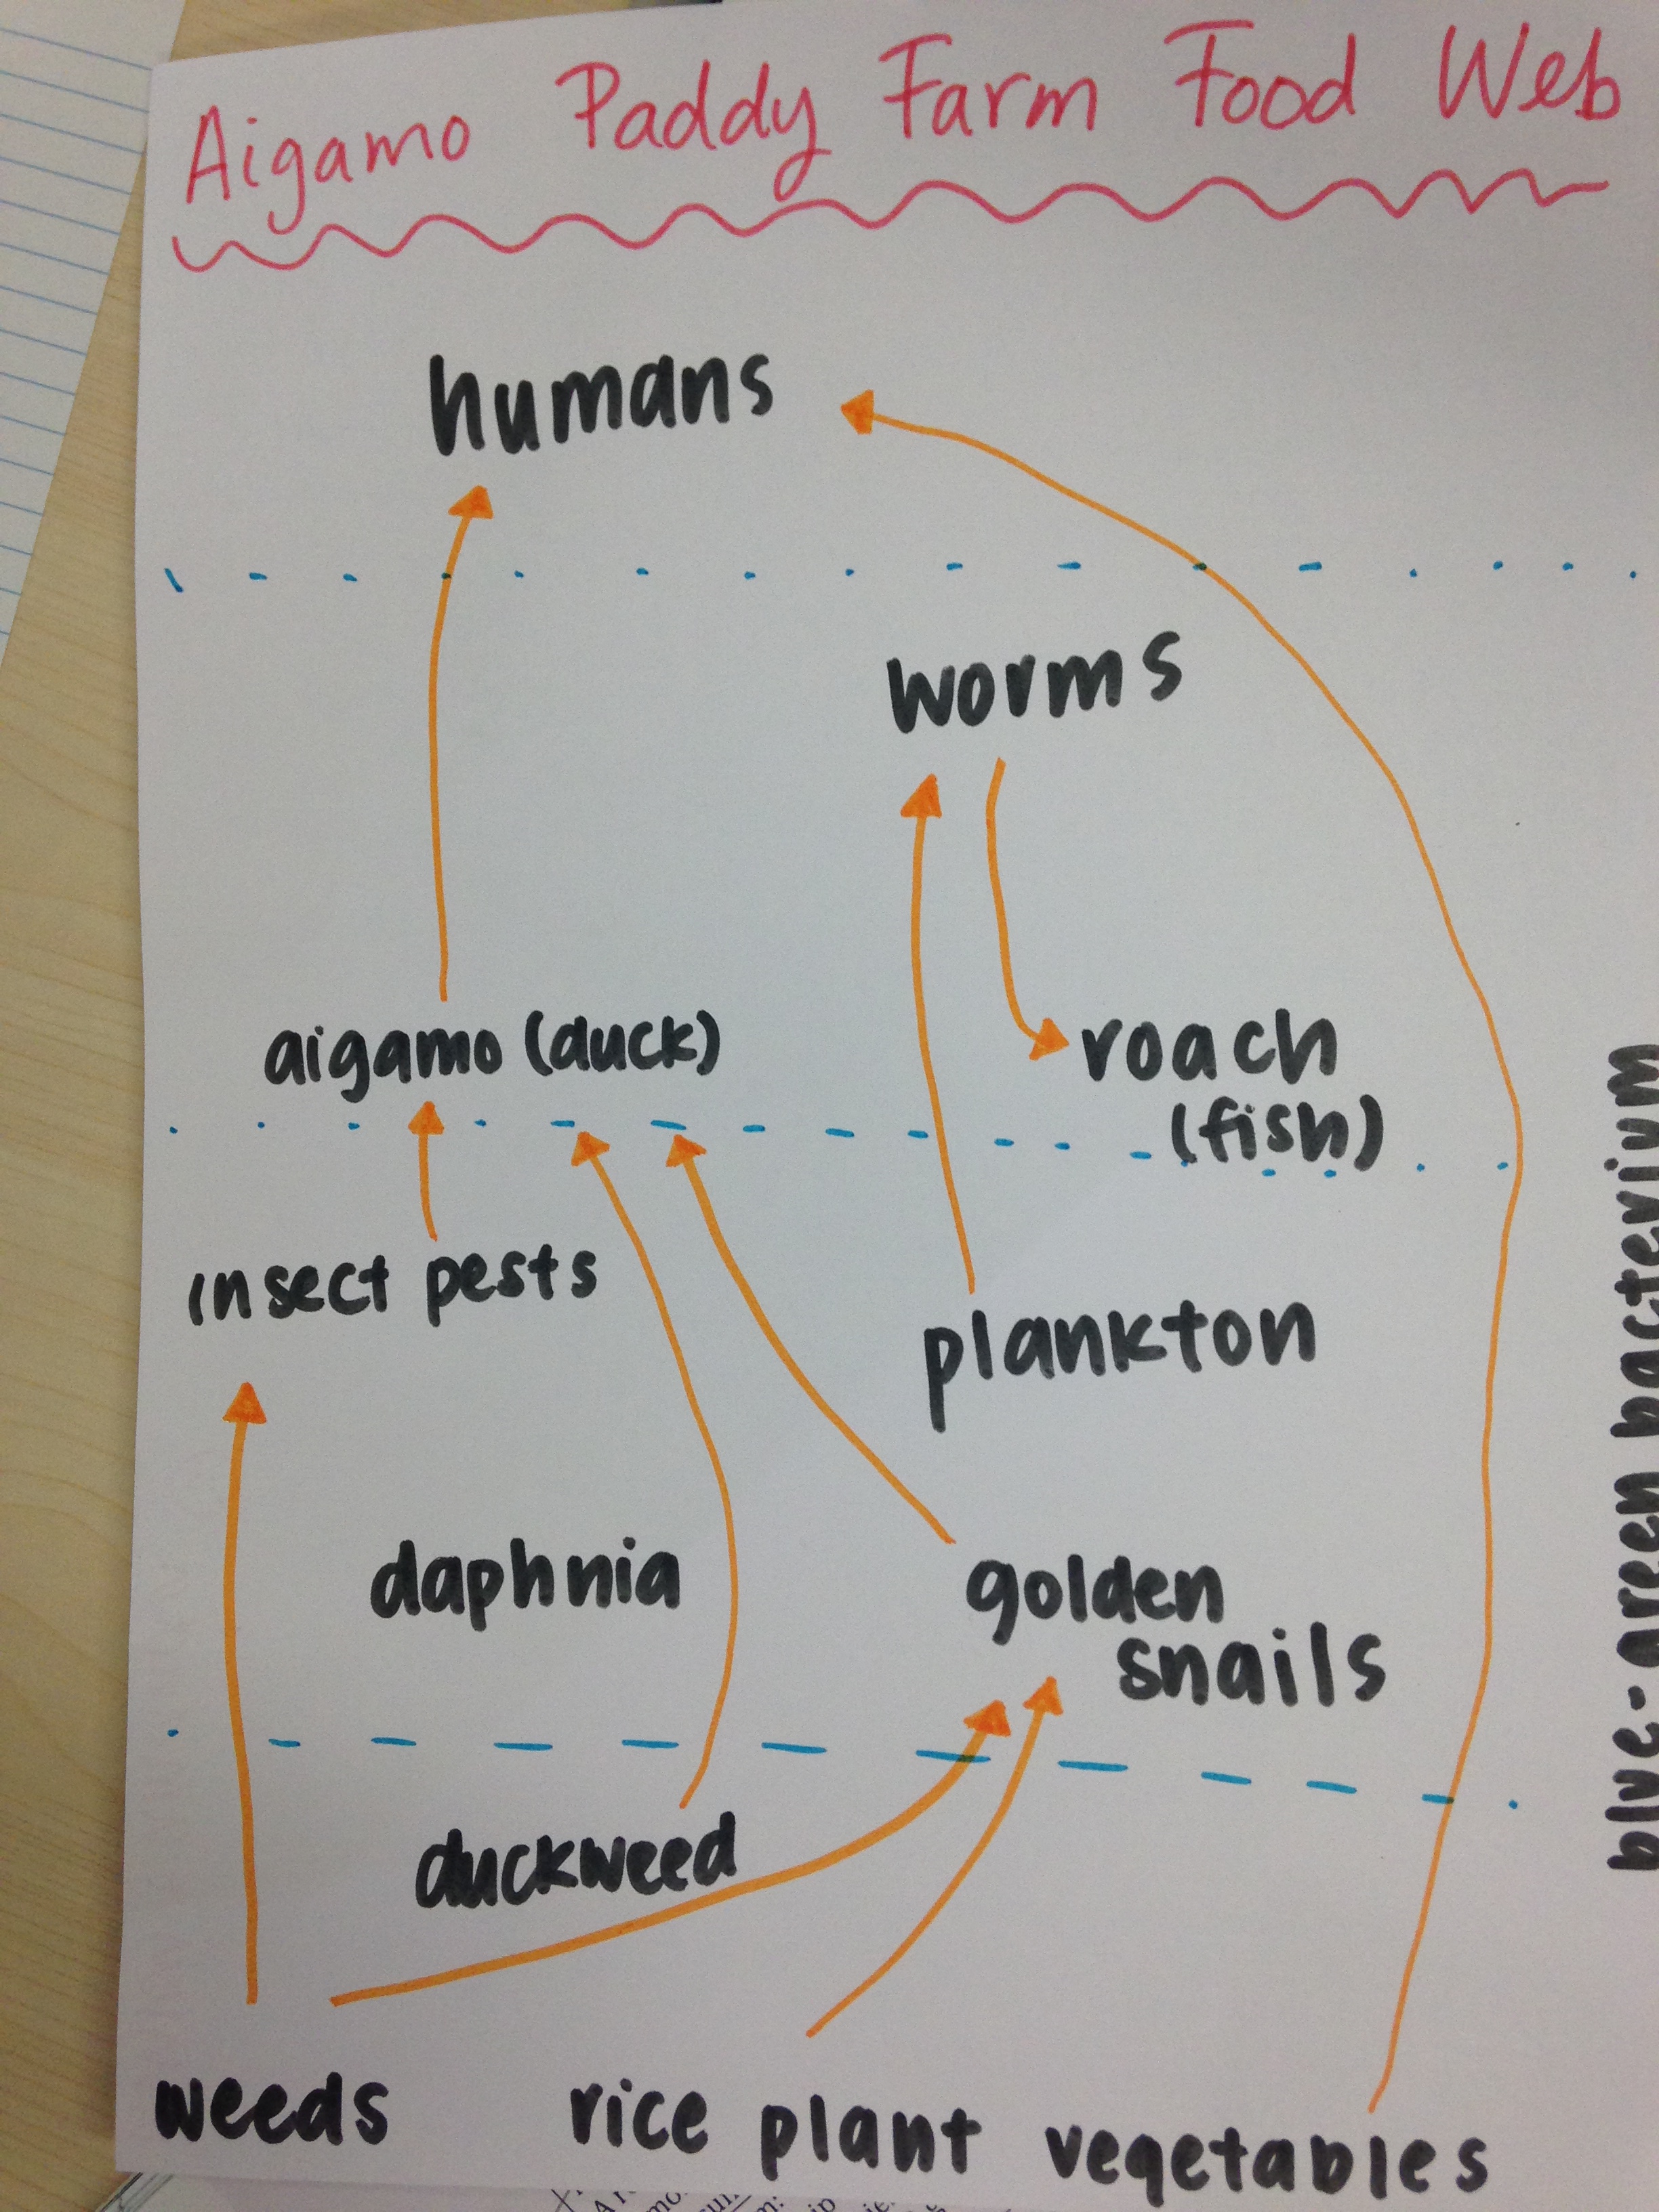 Aigamo Paddy Farm Food Web
humans
worms
aigamo (duck)
roach
(fish)
insect pests
plankton
daphnia
golden
snails
duckweed
weeds
rice plant
vegetables
blue-green bacterium